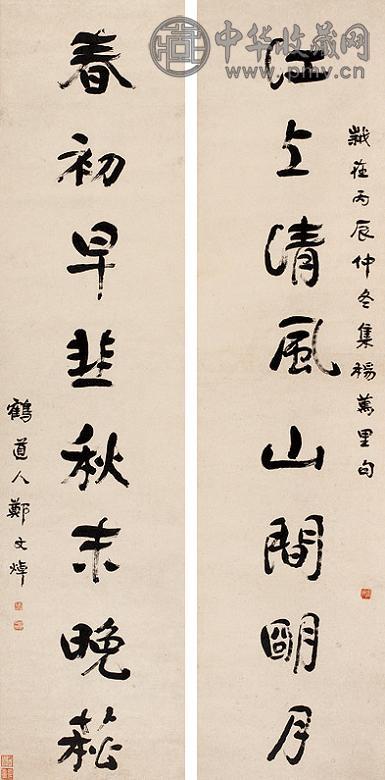 中华收藏网
www.pmv.cn
歲在丙辰仲冬集楊萬里句
江上清風山間朙月
春初早韭秋末晚菘
鶴道人鄭文焯